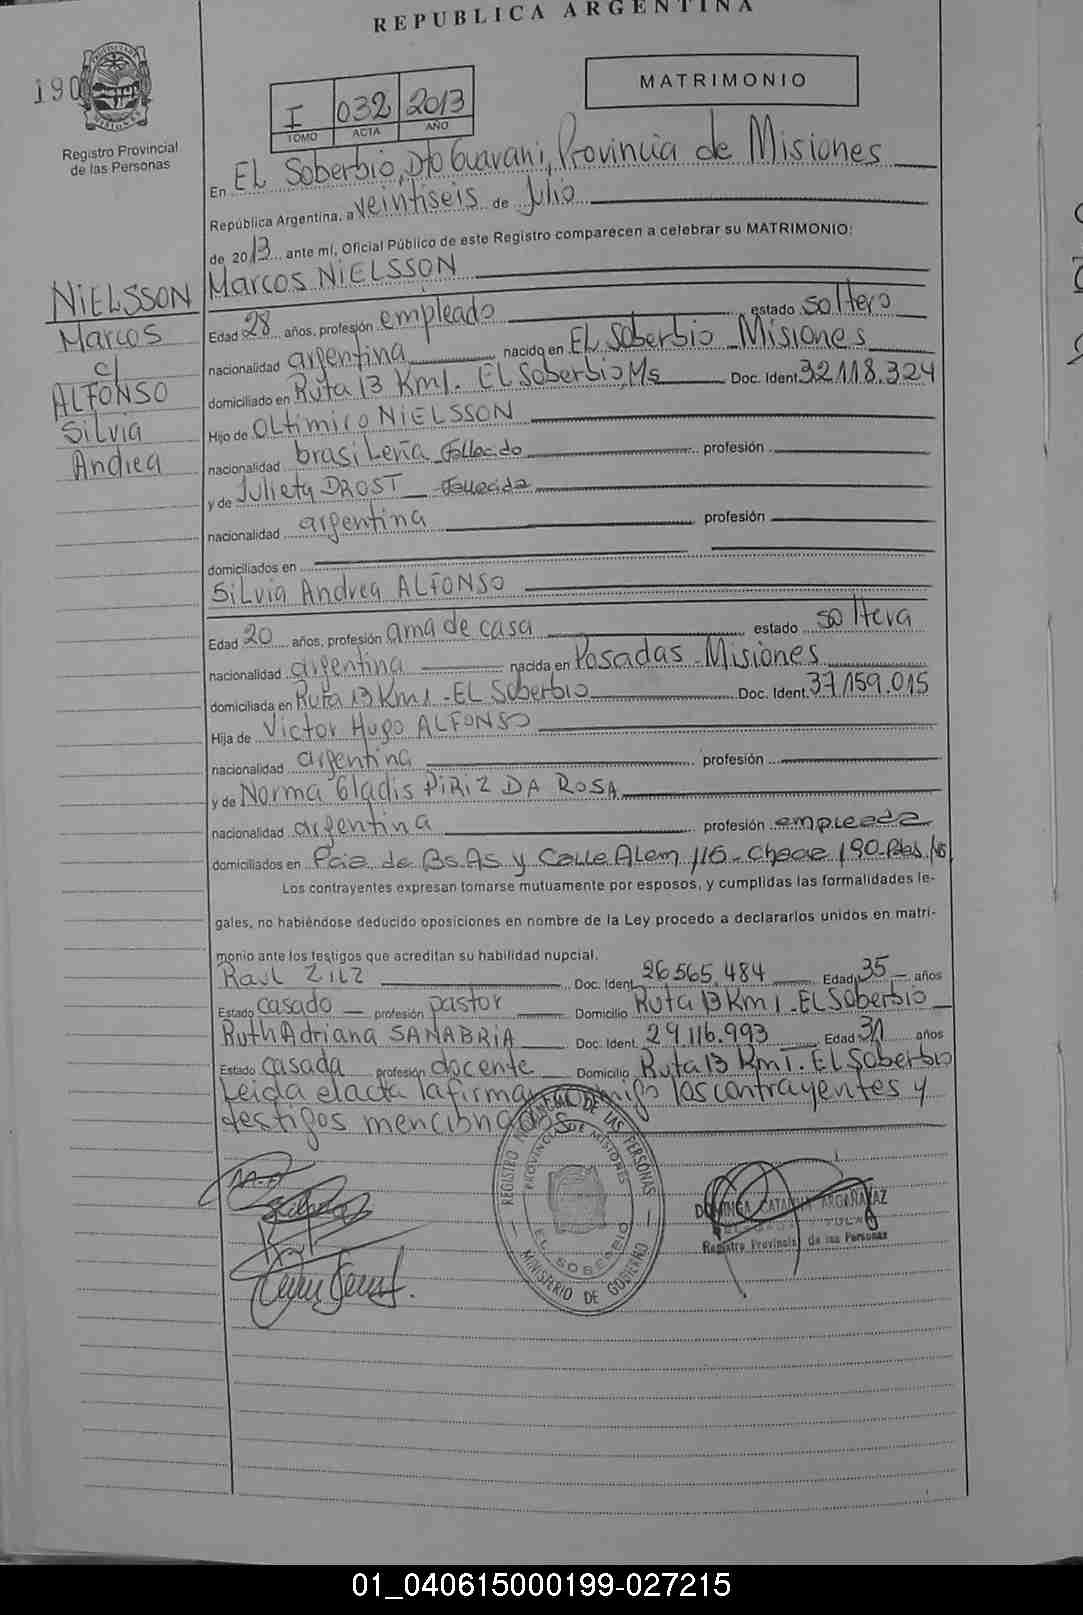 REPUBLICA ARGENTINA
190
Registro Provincial
de las Personas
I 032 2013
TOMO ACTA AÑO
MATRIMONIO
En EL Soberbio, Dto Guarani, Provincia de Misiones
República Argentina, a veintiseis de Julio
de 2013 ante mí, Oficial Público de este Registro comparecen a celebrar su MATRIMONIO:
NIELSSON
Marcos
c/
ALFONSO
Silvia
Andrea
Marcos NIELSSON
Edad 28 años, profesión empleado estado soltero
nacionalidad argentina nacido en EL Soberbio Misiones
domiciliado en Ruta 13 Km1. EL Soberbio, Ms Doc. Ident. 32.118.324
Hijo de OLtimiro NIELSSON
nacionalidad brasileña Fallecido profesión
y de Julieta DROST Fallecida
nacionalidad argentina profesión
domiciliados en
Silvia Andrea ALFONSO
Edad 20 años, profesión ama de casa estado soltera
nacionalidad argentina nacida en Posadas - Misiones
domiciliada en Ruta 13 Km1 - EL Soberbio Doc. Ident. 37.159.015
Hija de Victor Hugo ALFONSO
nacionalidad argentina profesión
y de Norma Gladis PIRIZ DA ROSA
nacionalidad argentina profesión empleada
domiciliados en Pcia de Bs.As y Calle Alem 116 - Chacra 190
Los contrayentes expresan tomarse mutuamente por esposos, y cumplidas las formalidades le-
gales, no habiéndose deducido oposiciones en nombre de la Ley procedo a declararlos unidos en matri-
monio ante los testigos que acreditan su habilidad nupcial.
Raul ZILZ Doc. Ident. 26.565.484 Edad 35 años
Estado casado profesión pastor Domicilio Ruta 13 Km 1 - EL Soberbio
Ruth Adriana SANABRIA Doc. Ident. 29.116.993 Edad 31 años
Estado casada profesión docente Domicilio Ruta 13 Km 1. EL Soberbio
Leida el acta la firman conmigo los contrayentes y
testigos mencionados
REGISTRO PROVINCIAL DE LAS PERSONAS
PROVINCIA DE MISIONES
EL SOBERBIO
MINISTERIO DE GOBIERNO
CATALINA
TITULAR
Registro Provincial de las Personas
01_040615000199-027215